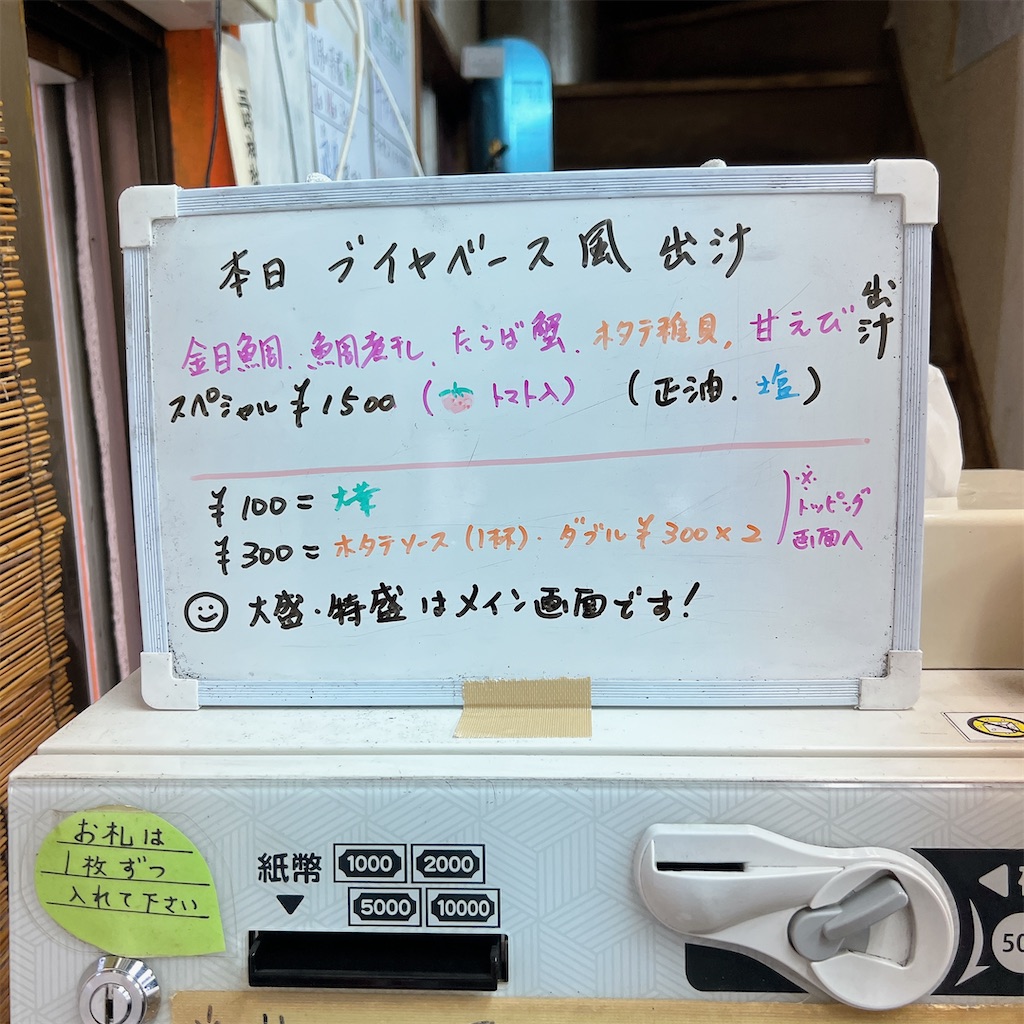 本日 ブイヤベース風 出汁
金目鯛、鯛煮干し、たらば蟹、ホタテ稚貝、甘えび 出汁
スペシャル ¥1500 (トマト入) (正油、塩)
¥100= 大葉
¥300= ホタテソース(1杯)・ダブル¥300×2
※トッピング
画面へ
大盛・特盛はメイン画面です!
お札は
1枚ずつ
入れて下さい
紙幣
1000 2000
5000 10000